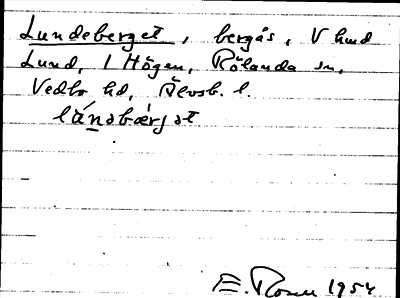 Lundeberget, bergås, V hmd
Lund, 1 Högen, Rölanda sn,
Vedbo hd, Älvsb. l.
E. Rosell 1954